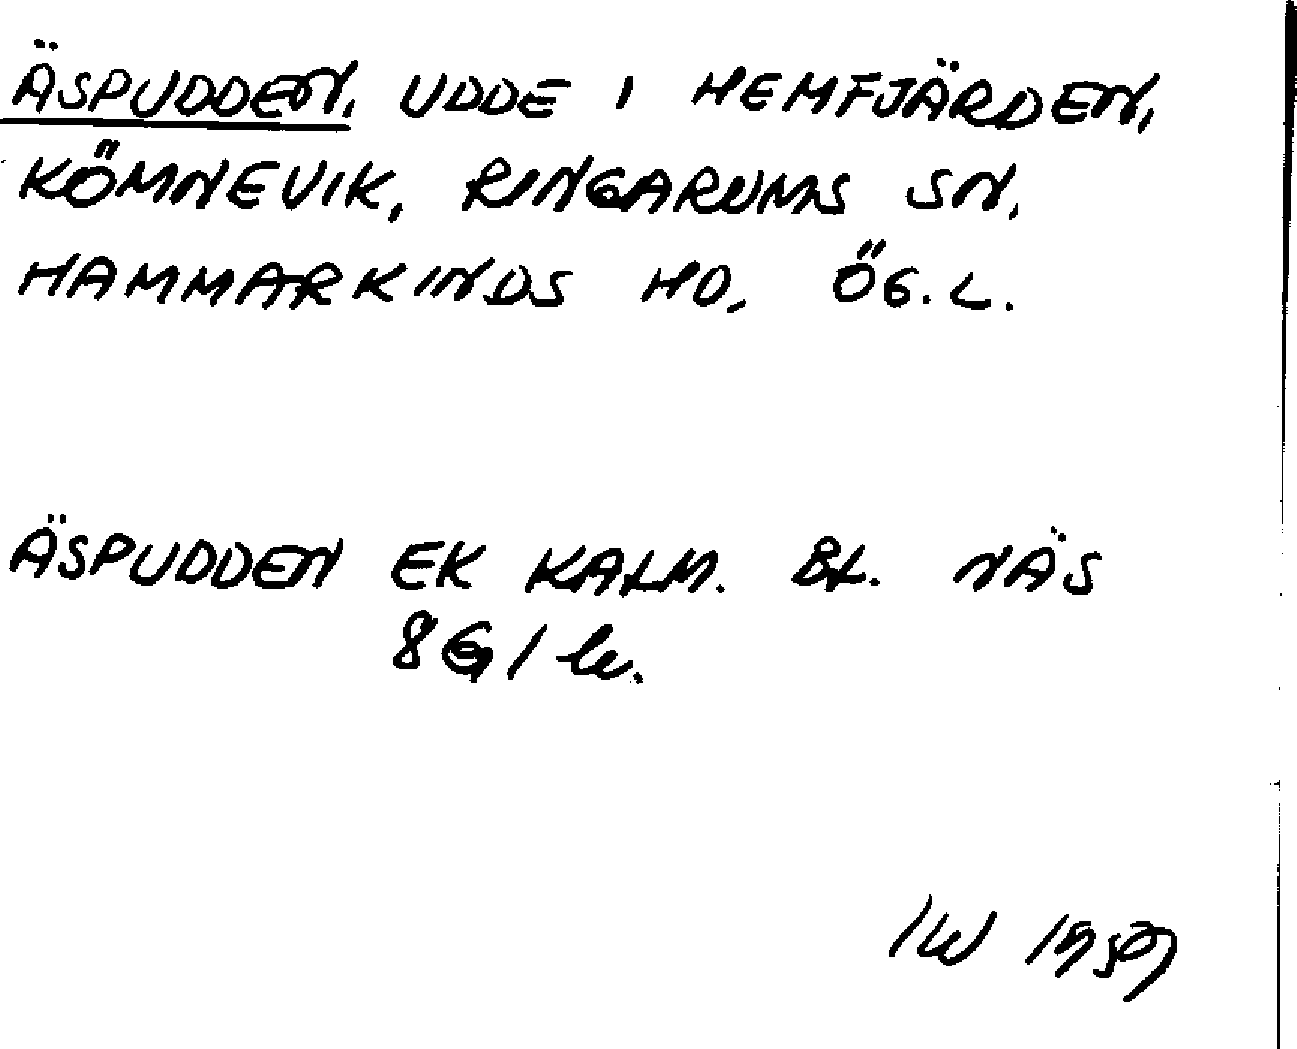 ÄSPUDDEN, UDDE I HEMFJÄRDEN,
KÖMNEVIK, RINGARUMS SN,
HAMMARKINDS HD, ÖG.L.
ÄSPUDDEN EK KALM. BL. NÄS
8G1 le.
IW 1959